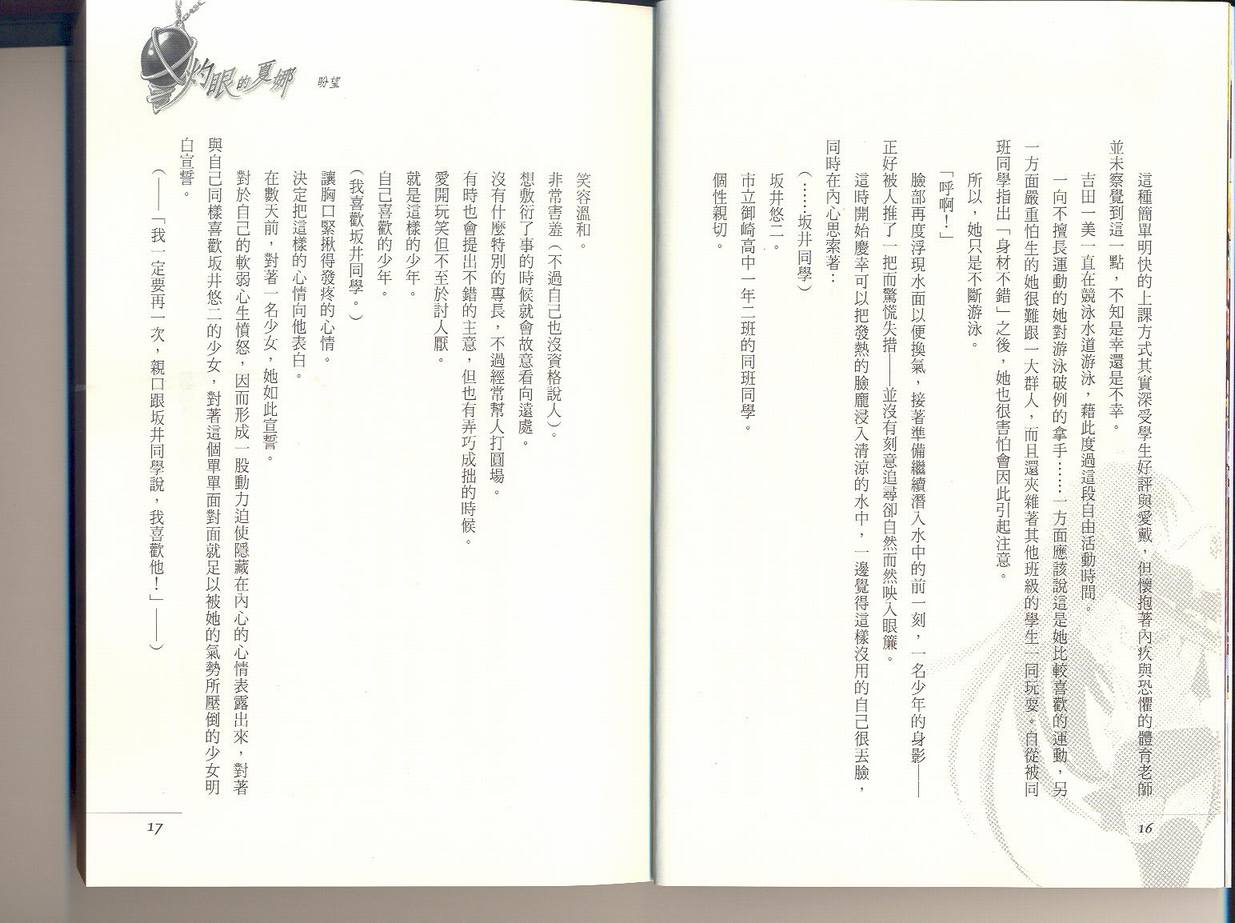 這種簡單明快的上課方式其實深受學生好評與愛戴，但懷抱著內疚與恐懼的體育老師
並未察覺到這一點，不知是幸還是不幸。
吉田一美一直在競泳水道游泳，藉此度過這段自由活動時間。
一向不擅長運動的她對游泳破例的拿手……一方面應該說這是她比較喜歡的運動，另
一方面嚴重怕生的她很難跟一大群人，而且還夾雜著其他班級的學生一同玩耍。自從被同
班同學指出「身材不錯」之後，她也很害怕會因此引起注意。
所以，她只是不斷游泳。
「呼啊！」
臉部再度浮現水面以便換氣，接著準備繼續潛入水中的前一刻，一名少年的身影——
正好被人推了一把而驚慌失措——並沒有刻意追尋卻自然而然映入眼簾。
這時開始慶幸可以把發熱的臉龐浸入清涼的水中，一邊覺得這樣沒用的自己很丟臉，
同時在內心思索著：
（……坂井同學）
坂井悠二。
市立御崎高中一年二班的同班同學。
個性親切。
16
灼眼的夏娜 盼望
笑容溫和。
非常害羞（不過自己也沒資格說人）。
想敷衍了事的時候就會故意看向遠處。
沒有什麼特別的專長，不過經常幫人打圓場。
有時也會提出不錯的主意，但也有弄巧成拙的時候。
愛開玩笑但不至於討人厭。
就是這樣的少年。
自己喜歡的少年。
（我喜歡坂井同學。）
讓胸口緊揪得發疼的心情。
決定把這樣的心情向他表白。
在數天前，對著一名少女，她如此宣誓。
對於自己的軟弱心生憤怒，因而形成一股動力迫使隱藏在內心的心情表露出來，對著
與自己同樣喜歡坂井悠二的少女，對著這個單單面對面就足以被她的氣勢所壓倒的少女明
白宣誓。
（——「我一定要再一次，親口跟坂井同學說，我喜歡他！」——）
17